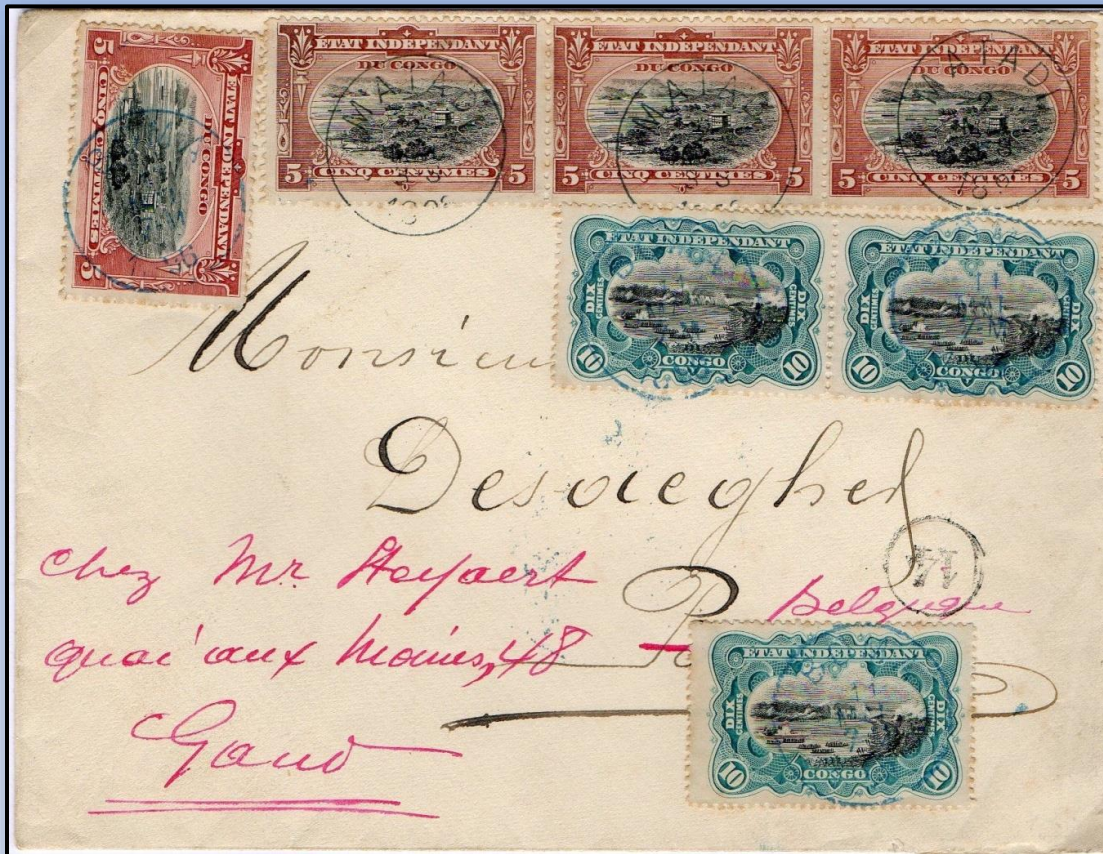 ÉTAT INDÉPENDANT DU CONGO
5 CINQ CENTIMES 5
ÉTAT INDÉPENDANT
DU CONGO
5 CINQ CENTIMES 5
ÉTAT INDÉPENDANT
DU CONGO
5 CINQ CENTIMES 5
ÉTAT INDÉPENDANT
DU CONGO
5 CINQ CENTIMES 5
MATADI
ÉTAT INDÉPENDANT
DIX CENTIMES DIX CENTIMES
10 DU CONGO 10
ÉTAT INDÉPENDANT
DIX CENTIMES DIX CENTIMES
10 DU CONGO 10
Monsieur
14
chez Mr
Belgique
quai aux Moines, 48
Gand
ÉTAT INDÉPENDANT
DIX CENTIMES DIX CENTIMES
10 CONGO 10